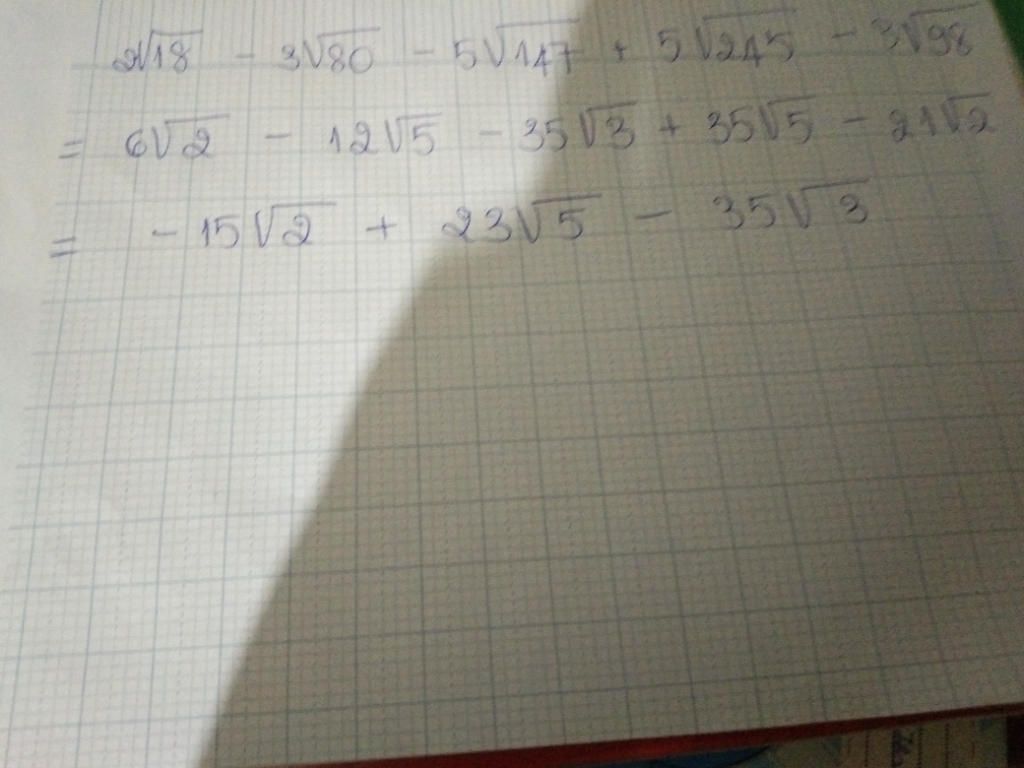 2√18 - 3√80 - 5√147 + 5√245 - 3√98
= 6√2 - 12√5 - 35√3 + 35√5 - 21√2
= -15√2 + 23√5 - 35√3